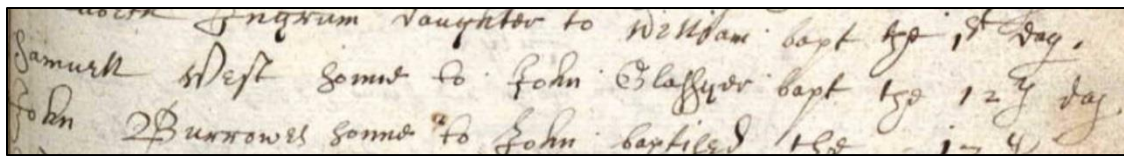 Ingram daughter to William bapt the 1st day.
Samuell West sonne to John Glasyer bapt the 12th day.
John Burrowes sonne to John baptised the